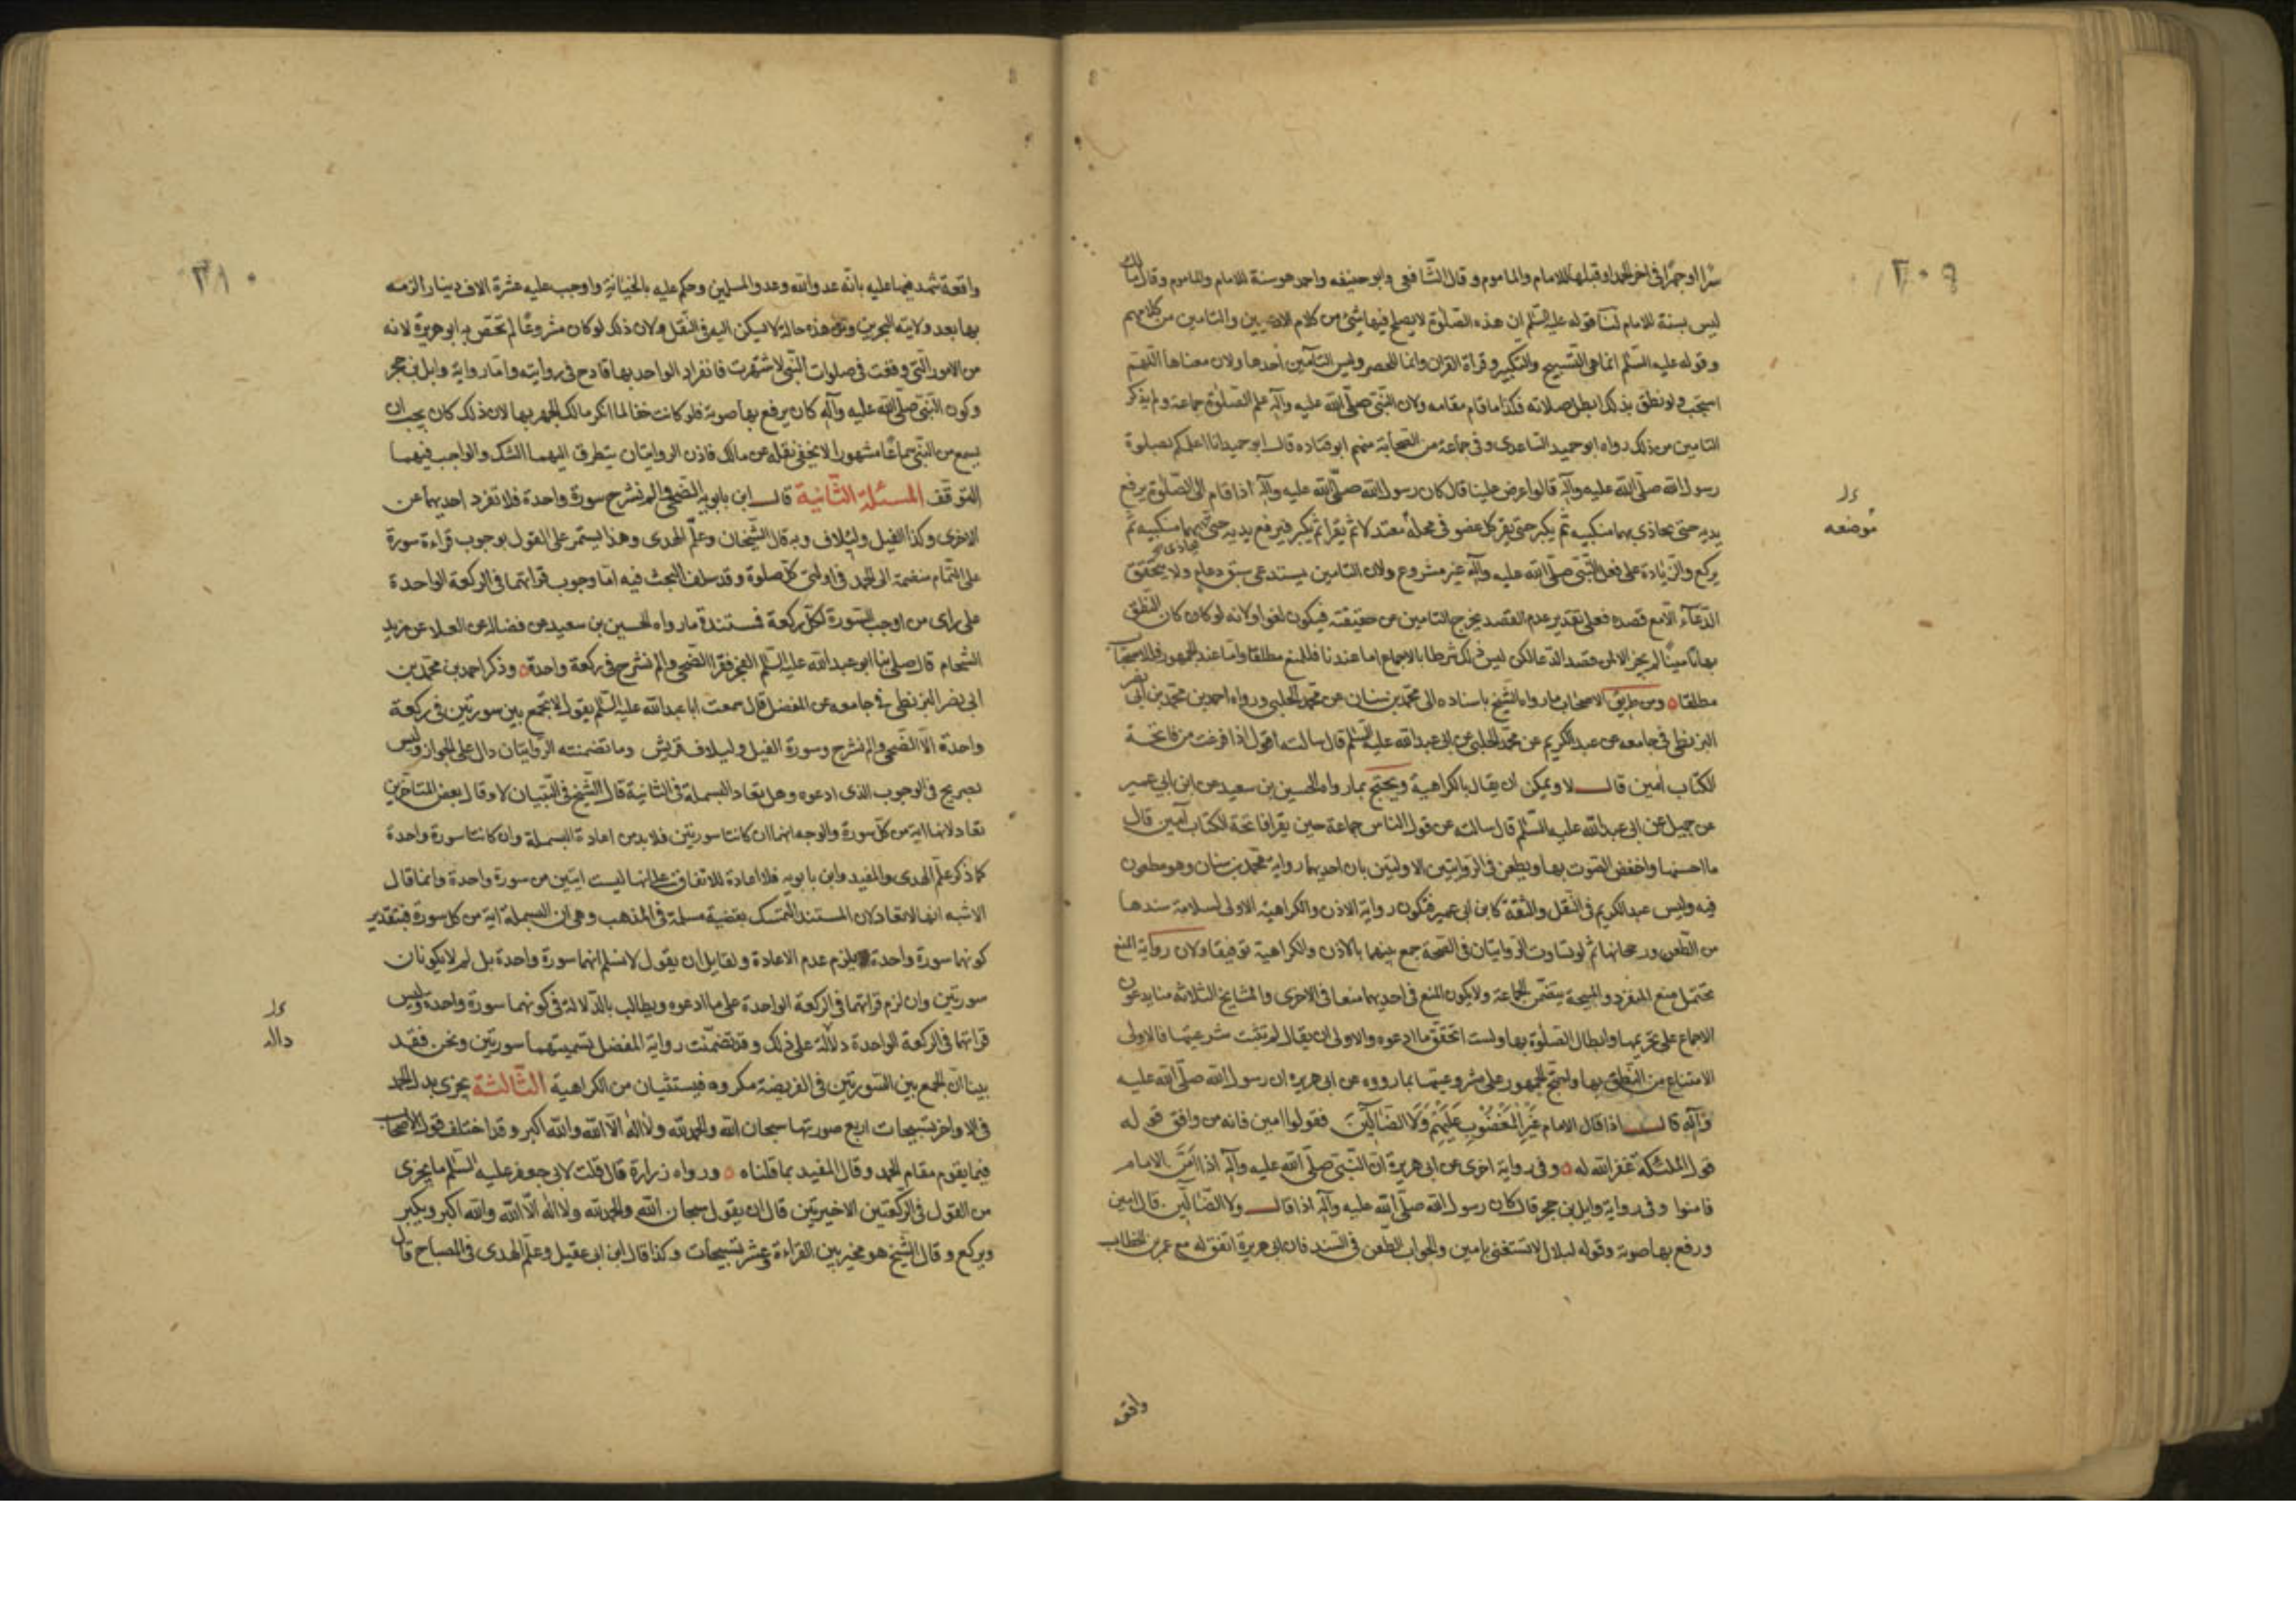 ٣٠٩
سرا او جهرا فى اخر الحمد او قبلها للامام والماموم و قال الشافعى وابو حنيفه واحمد هو سنة للامام والماموم وقال مالك
ليس بسنة للامام لنا قوله عليه السلم ان هذه الصلوة لا يصلح فيها شئ من كلام الادميين والتامين من كلامهم
وقوله عليه السلم انما هى التسبيح والتكبير وقراة القران وانما للحصر وليس التأمين أحدها ولان معناها اللهم
استجب ولو نطق بذلك ابطل صلاته فكذا ما قام مقامه ولان النبى صلى الله عليه وآله علم الصلوة جماعة ولم يذكر
التامين من ذلك رواه ابو حميد الساعدى وفى جماعة من الصحابة منهم ابو قتاده قال ابو حميد انا اعلمكم بصلوة
رسول الله صلى الله عليه وآله قالوا عرض علينا قال كان رسول الله صلى الله عليه وآله اذا قام الى الصلوة يرفع
يديه حتى يحاذى بهما منكبيه ثم يكبر حتى يقر كل عضو فى محله معتدلا ثم يقرا ثم يكبر فيرفع يديه حتى يحاذى بهما منكبيه ثم
يركع والزيادة على فعل النبى صلى الله عليه وآله غير مشروع ولان التامين يستدعى سبق دعاء ولا يتحقق
الدعآء الا مع قصده فعلى تقدير عدم القصد يخرج التامين عن حقيقته فيكون لغوا ولانه لو كان كان النطق
بها تامينا لم يجز الا لمن قصد الدعا لكن ليس ذلك شرطا بالاجماع اما عندنا فللمنع مطلقا واما عند الجمهور فللاستحباب
مطلقا ومن طريق الاصحاب ما رواه الشيخ باسناده الى محمد بن سنان عن محمد الحلبى ورواه احمد بن محمد بن ابى نصر
البزنطى فى جامعه عن عبد الكريم عن محمد الحلبى عن ابى عبد الله عليه السلم قال سالته اقول اذا فرغت من فاتحة
الكتاب أمين قال لا ويمكن ان يقال بالكراهية ويحتج بما رواه الحسين بن سعيد عن ابن ابى عمير
عن جميل عن ابى عبد الله عليه السلم قال سالته عن قول الناس جماعة حين يقرا فاتحة الكتاب آمين قال
ما احسنها واخفض الصوت بها ويطعن فى الروايتين الاوليين بان احديهما رواية محمد بن سنان وهو مطعون
فيه وليس عبد الكريم فى النقل والثقة كابن ابى عمير فتكون رواية الاذن والكراهية الاولى لسلامة سندها
من الطعن ورجحانها ثم لو تساوت الروايتان فى الصحة جمع بينهما بالاذن والكراهية توفيقا ولان رواية المنع
تحتمل منع المنفرد والمبيحة يتضمن الجماعة ولا يكون المنع فى احديهما منعا فى الاخرى والمشايخ الثلاثه منا يدعون
الاجماع على تحريمها وابطال الصلوة بها ولست اتحقق ما ادعوه والاولى ان يقال لم تثبت شرعيتها فالاولى
الامتناع من النطق بها واحتج الجمهور على مشروعيتها بما رووه عن ابى هريرة ان رسول الله صلى الله عليه
وآله قال اذا قال الامام غَيْرِ الْمَغْضُوبِ عَلَيْهِمْ وَلَا الضَّآلِّينَ فقولوا امين فانه من وافق قوله
قول الملئكة غفر الله له وفى رواية اخرى عن ابى هريرة ان النبى صلى الله عليه وآله اذا امن الامام
فامنوا وفى رواية وايل بن حجر قال كان رسول الله صلى الله عليه وآله اذا قال ولا الضآلين قال امين
ورفع بها صوته وقوله لبلال لا تستغنى بامين والجواب الطعن فى السند فان ابى هريرة اتفق له مع عمر بن الخطاب
موضعه
واقعة
٣١٠
واقعة شهد فيها عليه بانه عدو الله وعدو المسلمين وحكم عليه بالخيانة واوجب عليه عشرة الاف دينار الزمه
بها بعد ولايته البحرين ومن هذه حاله لا يسكن اليه فى النقل ولان ذلك لو كان مشروعا لم تختص به ابو هريرة لانه
من الامور التى وقعت فى صلوات النبى لاشتهرت فانفراد الواحد بها قادح فى روايته واما رواية وايل بن حجر
وكون النبى صلى الله عليه وآله كان يرفع بها صوته فلو كانت حقا لما انكر مالك الجهر بها لان ذلك كان يجب ان
يسمع من النبى سماعا مشهورا لا يخفى نقله عن مالك فاذن الروايتان يتطرق اليهما الشك والواجب فيهما
التوقف المسئلة الثانية قال ابن بابويه الضحى والم نشرح سورة واحدة فلا تفرد احديهما عن
الاخرى وكذا الفيل ولئلاف وبه قال الشيخان وعلم الهدى وهذا يستمر على القول بوجوب قراءة سورة
على التمام منضمة الى الحمد فى اولتى كل صلوة وقد سلف البحث فيه اما وجوب قراتهما فى الركعة الواحدة
على راى من اوجب السورة لكل ركعة فمستنده ما رواه الحسين بن سعيد عن فضالة عن العلا عن زيد
الشحام قال صلى بنا ابو عبد الله عليه السلم الفجر فقرا الضحى والم نشرح فى ركعة واحدة وذكر احمد بن محمد بن
ابى نصر البزنطى فى جامعه عن المفضل قال سمعت ابا عبد الله عليه السلم يقول لا تجمع بين سورتين فى ركعة
واحدة الا الضحى والم نشرح وسورة الفيل ولئيلاف قريش وما تضمنته الروايتان دال على الجواز وليس
بصريح فى الوجوب الذى ادعوه وهل تعاد البسملة فى الثانية قال الشيخ فى التبيان لا وقال بعض المتاخرين
تعاد لانها اية من كل سورة والوجه انهما ان كانتا سورتين فلا بد من اعادة البسملة وان كانتا سورة واحدة
كما ذكر علم الهدى والمفيد وابن بابويه فلا اعادة للاتفاق على انها ليست ايتين من سورة واحدة وانما قال
الاشبه انها لا تعاد لان المستند التمسك بقضية مسلمة فى المذهب وهى ان البسملة اية من كل سورة فبتقدير
كونهما سورة واحدة يلزم عدم الاعادة ولقايل ان يقول لا نسلم انهما سورة واحدة بل لم لا يكونان
سورتين وان لزم قراتهما فى الركعة الواحدة على ما ادعوه ويطالب بالدلالة فى كونهما سورة واحدة وليس
قراتهما فى الركعة الواحدة دلالة على ذلك وقد تضمنت رواية المفضل تسميتهما سورتين ونحن فقد
بينا ان الجمع بين السورتين فى الفريضة مكروه فيستثنيان من الكراهية الثالثة يجزى بدل الحمد
فى الاواخر تسبيحات اربع صورتها سبحان الله والحمد لله ولا اله الا الله والله اكبر وقد اختلف قول الاصحاب
فيما يقوم مقام الحمد وقال المفيد بما قلناه ورواه زرارة قال قلت لابى جعفر عليه السلم ما يجزى
من القول فى الركعتين الاخيرتين قال ان يقول سبحان الله والحمد لله ولا اله الا الله والله اكبر ويكبر
ويركع وقال الشيخ هو مخير بين القراءة وعشر تسبيحات وكذا قال ابن ابى عقيل وعلم الهدى فى المصباح قال
دالة